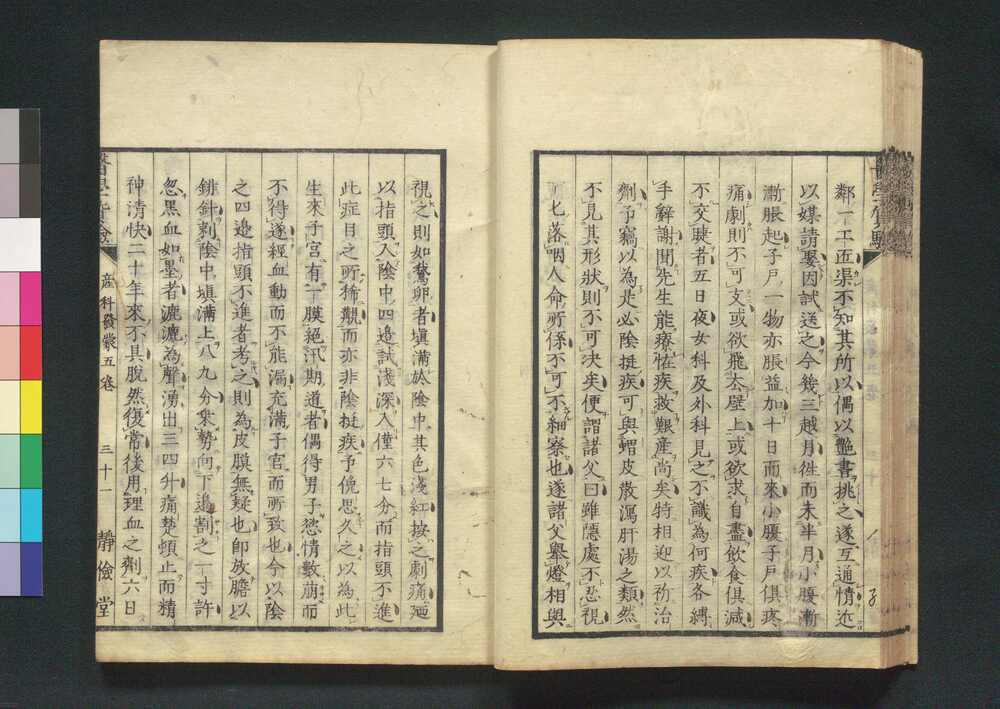 鄰一工匠渠不知其所以偶以艷書挑之遂互通情近
以媒請娶因試送之今幾三越月徃而未半月小腹漸
漸脹起子戶一物亦脹益加十日而來小腹子戶俱疼
痛劇則不可支或欲飛太壁上或欲求自盡飲食俱減
不交睫者五日夜女科及外科見之不識為何疾各縛
手辭謝聞先生能療恠疾救艱産尚矣特相迎以祈治
劑予竊以為是必陰挺疾可與蝟皮散瀉肝湯之類然
不見其形狀則不可决矣便謂諸父曰雖隱處不忍視
七落咽人命所係不可不細察也遂諸父舉燈相與
視之則如鵞卵者塡滿於陰中其色淺紅按之劇痛廼
以指頭入陰中四邉試淺深入僅六七分而指頭不進
此症目之所稀覯而亦非陰挺疾予俛思久之以為此
生來子宮有一膜絕汛期道者偶得男子慾情數萠而
不得遂經血動而不能漏充滿子宮而所致也今以陰
之四邉指頭不進者考之則為皮膜無疑也卽放膽以
鈹針刺陰中塡滿上八九分裳勢向下追割之一寸許
忽黑血如墨者漉漉為聲湧出三四升痛楚頓止而精
神清快二十年來不具脫然復常後用理血之劑六日
産科發蒙五卷
三十一
靜儉堂